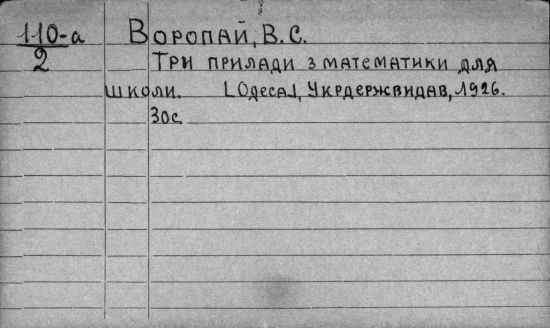 110-а
2
Воропай, В. С.
Три прилади з математики для
школи. [Одеса], Укрдержвидав, 1926.
30с.